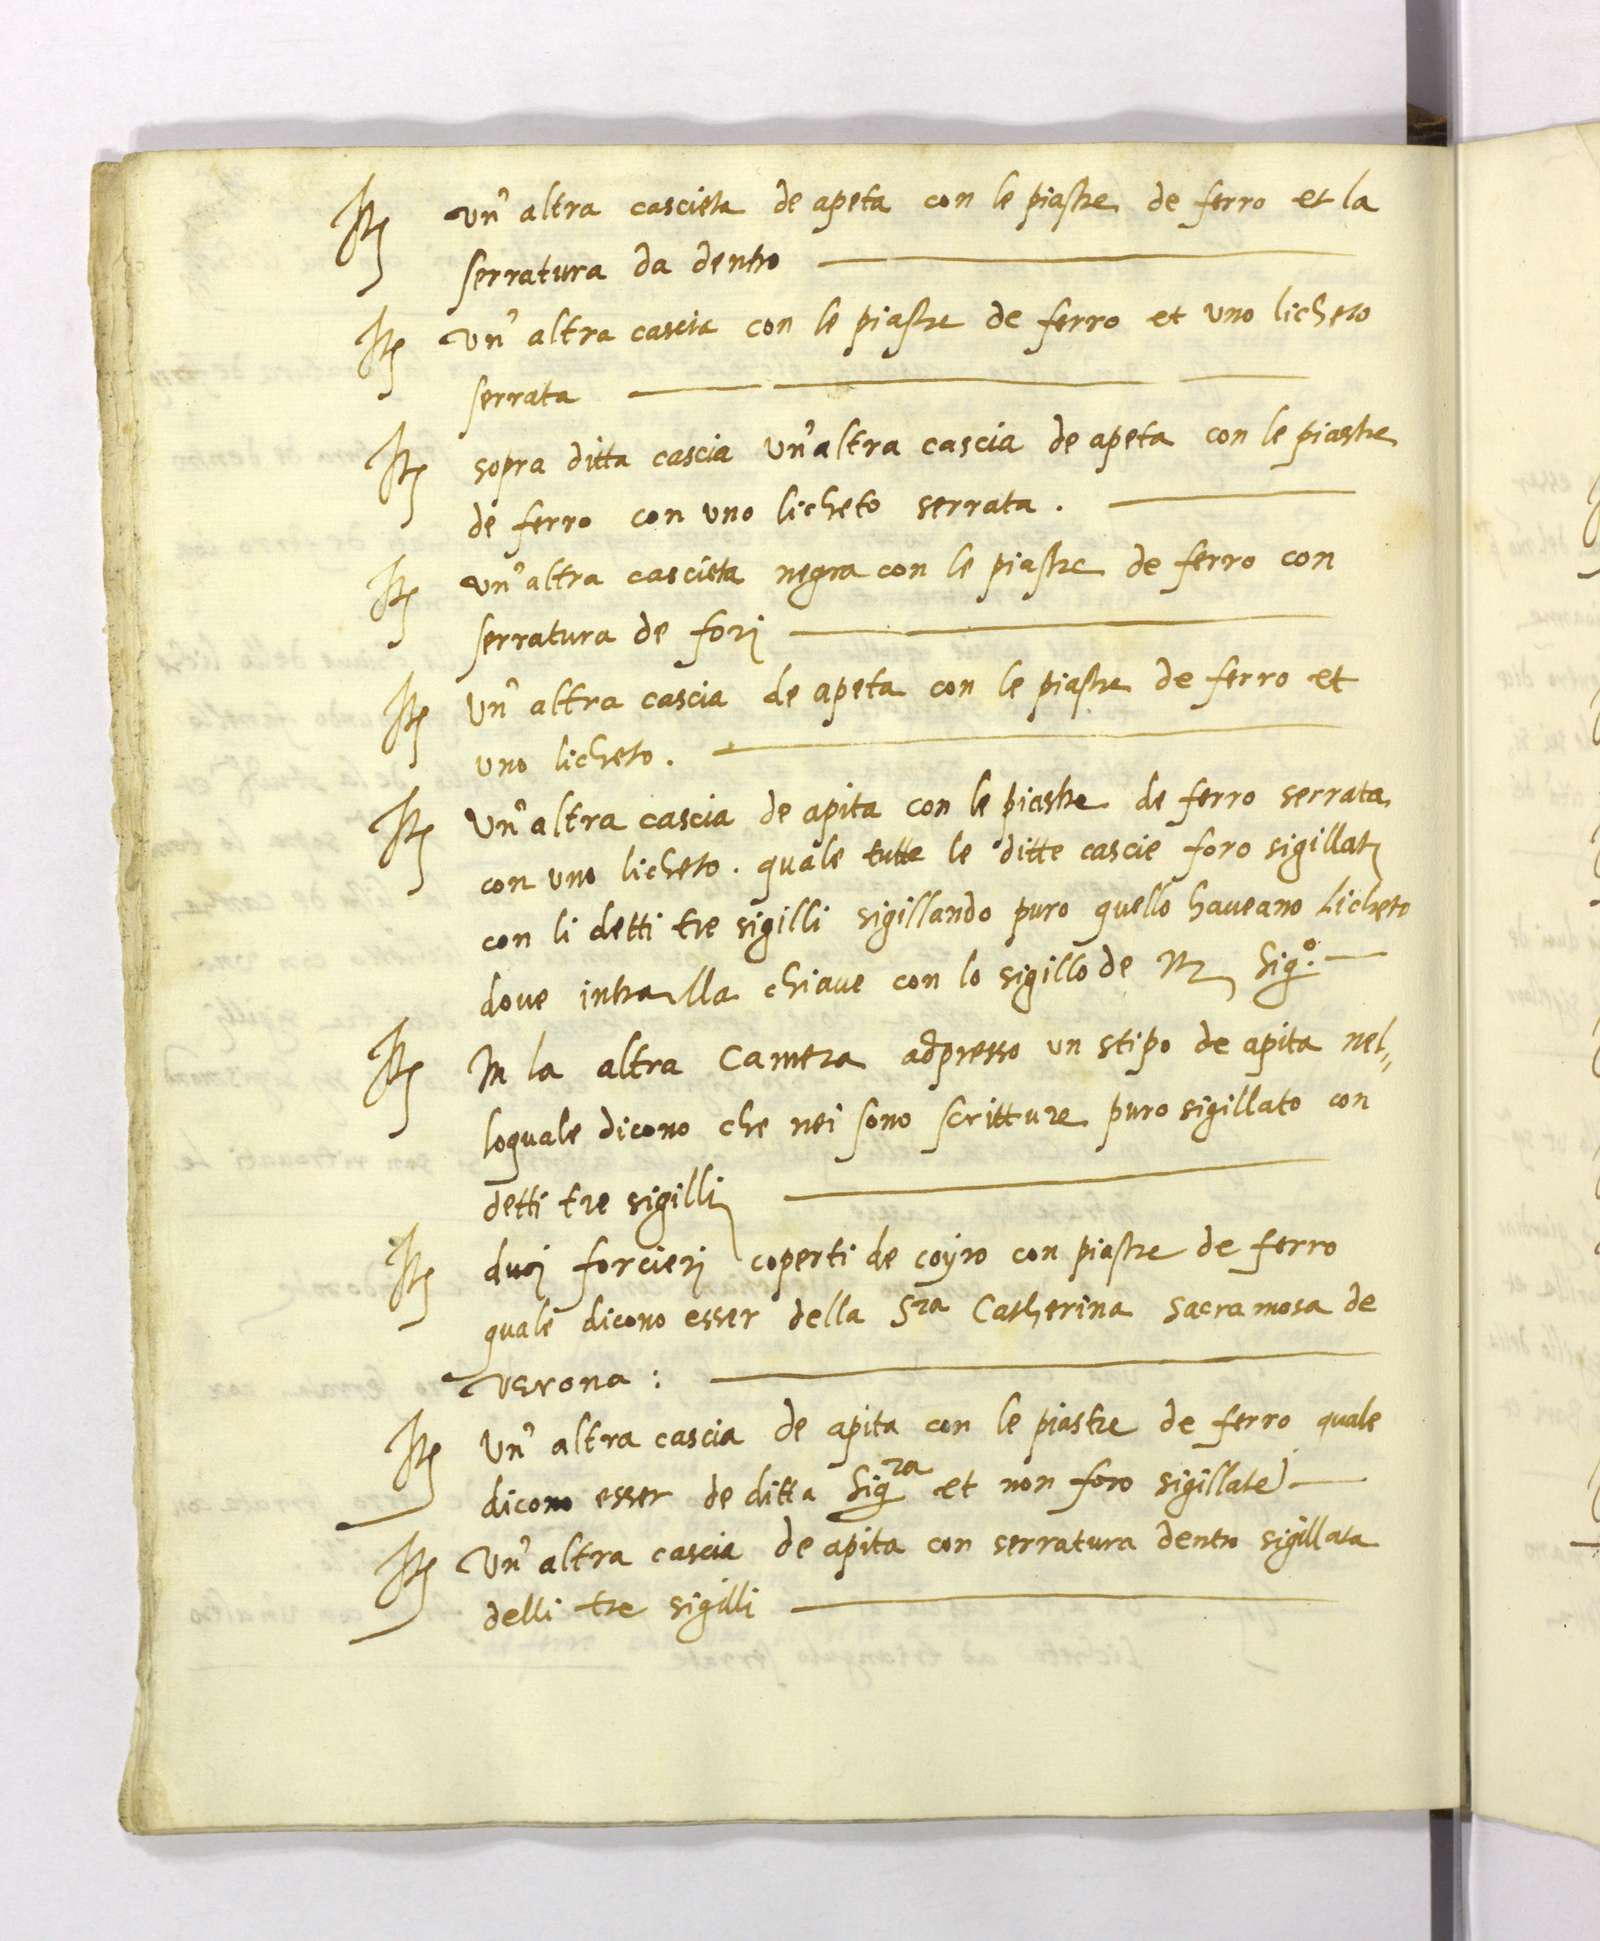 It͂ un' altra cascieta de apeta con le piastre de ferro et la
serratura da dentro
It͂ un' altra cascia con le piastre de ferro et uno licheto
serrata
It͂ sopra ditta cascia un'altra cascia de apeta con le piastre
de ferro con uno licheto serrata .
It͂ un' altra cascieta negra con le piastre de ferro con
serratura de forj
It͂ un' altra cascia de apeta con le piastre de ferro et
uno licheto .
It͂ un' altra cascia de apita con le piastre de ferro serrata
con uno licheto . quale tutte le ditte cascie foro sigillatj
con li detti tre sigilli sigillando puro quello haveano Licheto
dove intra lla chiave con lo sigillo de Sig.º
It͂ In la altra Camera adpresso un stipo de apita nel„
loquale dicono che nei sono scritture puro sigillato con
detti tre sigillj
It͂ duoj forcierj coperti de coyro con piastre de ferro
quale dicono esser della Sra Catherina Sacramosa de
Verona :
It͂ Un' altra cascia de apita con le piastre de ferro quale
dicono esser de ditta Sigra et non foro sigillate
It͂ Un' altra cascia de apita con serratura dentro sigillata
delli tre sigilli